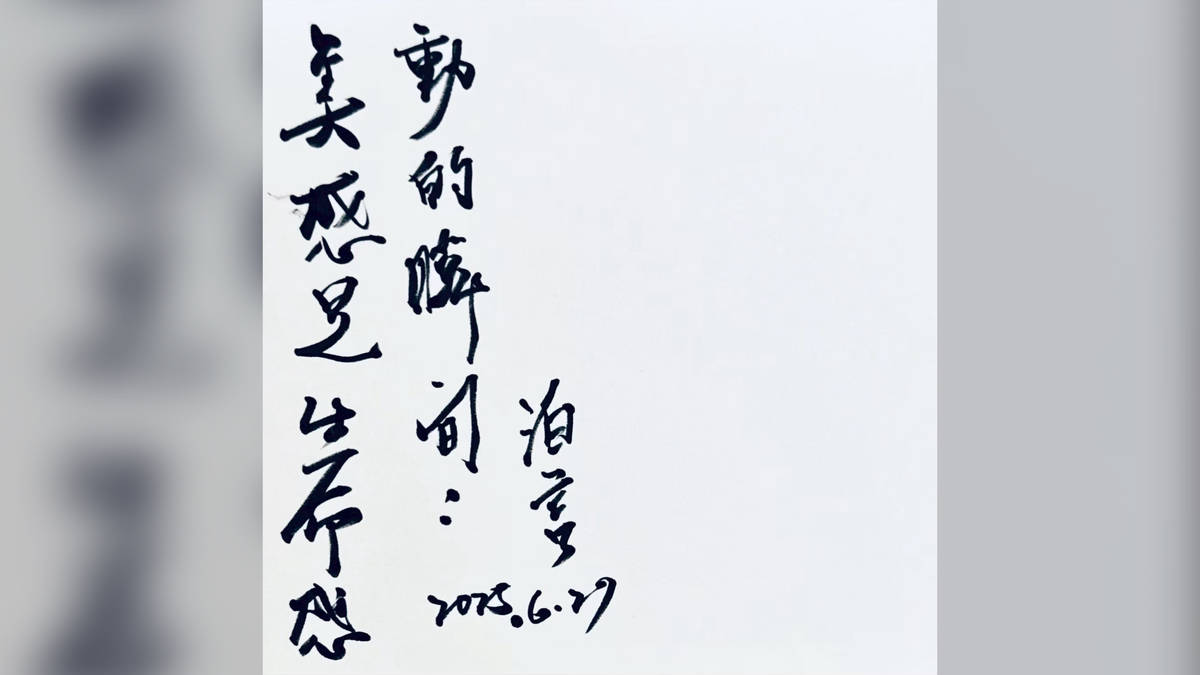 美感是生命感
動的瞬间：
泊
2025.6.29